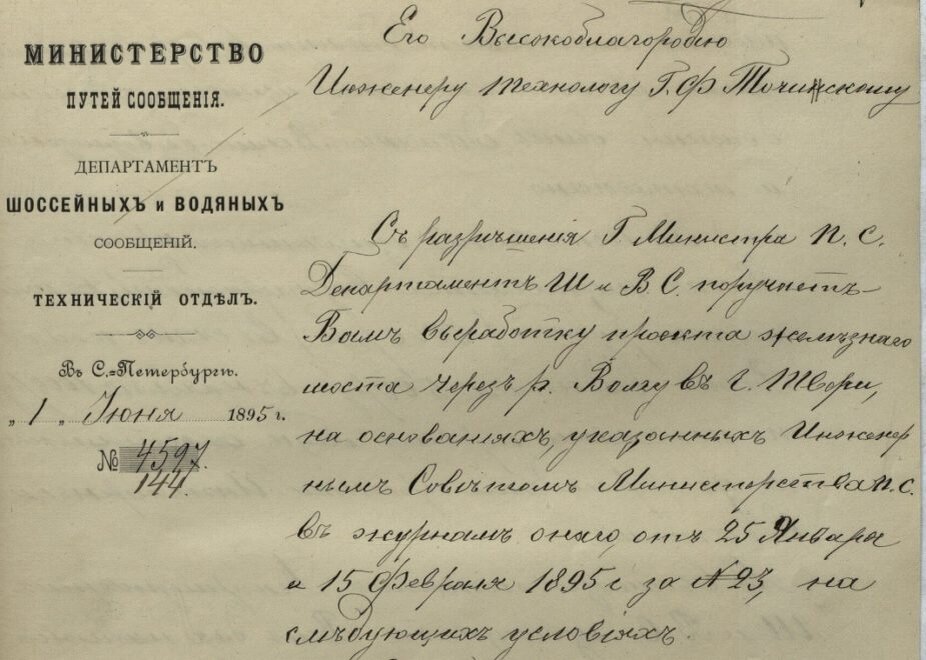 МИНИСТЕРСТВО
ПУТЕЙ СООБЩЕНІЯ.
ДЕПАРТАМЕНТЪ
ШОССЕЙНЫХЪ и ВОДЯНЫХЪ
СООБЩЕНІЙ.
ТЕХНИЧЕСКІЙ ОТДѢЛЪ.
Въ С.=Петербургѣ.
„ 1 „ Іюня 1895 г.
№ 4597.
144.
Его Высокоблагородію
Инженеру технологу Г. Ф Точинскому
Съ разрѣшенія Г. Министра П. С.
Департаментъ Ш и В. С. поручаетъ
Вамъ выработку проекта желѣзнаго
моста черезъ р. Волгу въ г. Твери,
на основаніяхъ, указанныхъ Инженер
нымъ Совѣтомъ Министерства П. С.
въ журналѣ онаго, отъ 25 Января
и 15 Февраля 1895 г за №23, на
слѣдующихъ условіяхъ.